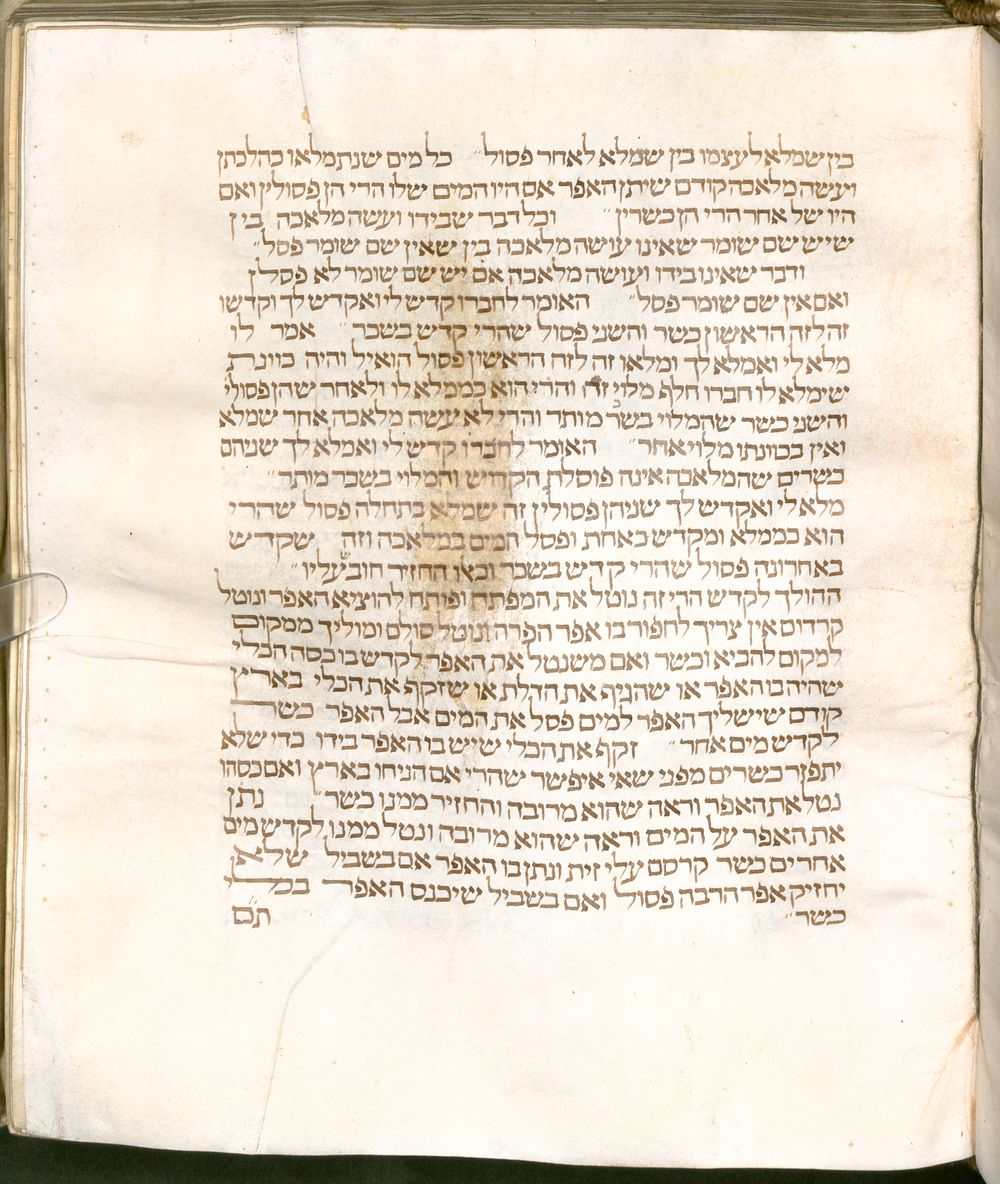 בין שמלא לעצמו בין שמלא לאחר פסול״ כל מים שנתמלאו כהלכתן
ועשה מלאכה קודם שיתן האפר אם היו המים שלו הרי הן פסולין ואם
היו של אחר הרי הן כשרין״ וכל דבר שבידו ועשה מלאכה בין
שיש שם שומר שאינו עושה מלאכה בין שאין שם שומר פסל״
ודבר שאינו בידו ועושה מלאכה אם יש שם שומר לא פסלן
ואם אין שם שומר פסל״ האומר לחברו קדש לי ואקדש לך וקדשו
זה לזה הראשון כשר והשני פסול שהרי קדש בשכר״ אמר לו
מלא לי ואמלא לך ומלאו זה לזה הראשון פסול הואיל והיה כוונת
שימלא לו חברו חלף מלוי זה והרי הוא כממלא לו ולאחר שהן פסולי
והשני כשר שהמלוי בשכר מותר והרי לא עשה מלאכה אחר שמלא
ואין בכוונתו מלוי אחר״ האומר לחברו קדש לי ואמלא לך שניהם
כשרים שהמלאכה אינה פוסלת הקדוש והמלוי בשכר מותר״
מלא לי ואקדש לך שניהן פסולין זה שמלא בתחלה פסול שהרי
הוא כממלא ומקדש באחת ופסל המים במלאכה וזה שקדש
באחרונה פסול שהרי קדש בשכר וכאו החזיר חוב עליו״
ההולך לקדש הרי זה נוטל את המפתח ופותח להוציא האפר ונוטל
קרדום אין צריך לחפור בו אפר הפרה ונוטל סולם ומוליך ממקום
למקום להביא וכשר ואם משנטל את האפר לקדש בו כסה הכלי
שהיה בו האפר או שהגיף את הדלת או שזקף את הכלי בארץ
קודם שישליך האפר למים פסל את המים אבל האפר כשר
לקדש מים אחר״ זקף את הכלי שיש בו האפר בידו כדי שלא
יתפזר כשרים מפני שאי איפשר שהרי אם הניחו בארץ ואם כסהו
נטל את האפר וראה שהוא מרובה והחזיר ממנו כשר״ נתן
את האפר על המים וראה שהוא מרובה ונטל ממנו לקדש מים
אחרים כשר קרסם עלי זית ונתן בו האפר אם בשביל שלא
יחזיק אפר הרבה פסול ואם בשביל שיכנס האפר בכלי
כשר״ תם